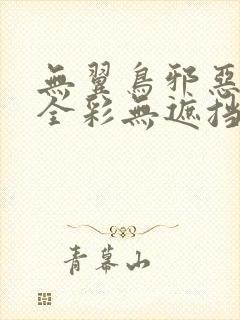 無翼鳥邪惡
全彩無遮挡
青幕山